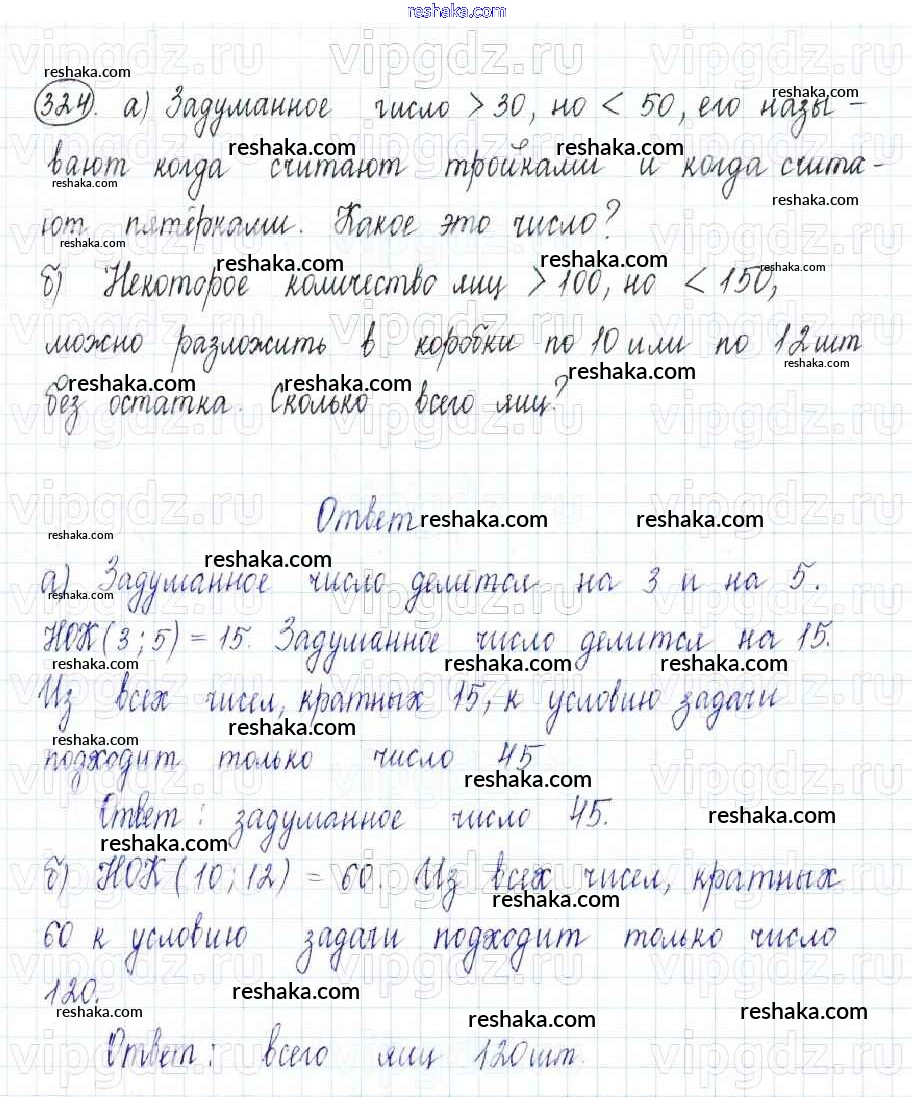 reshaka.com
324. а) Задуманное число > 30, но < 50, его назы-
вают когда считают тройками и когда счита-
ют пятёрками. Какое это число?
б) Некоторое количество яиц > 100, но < 150,
можно разложить в коробки по 10 или по 12 шт
без остатка. Сколько всего яиц?
Ответ
а) Задуманное число делится на 3 и на 5.
НОК (3; 5) = 15. Задуманное число делится на 15.
Из всех чисел, кратных 15, к условию задачи
подходит только число 45
Ответ: задуманное число 45.
б) НОК (10; 12) = 60. Из всех чисел, кратных
60 к условию задачи подходит только число
120.
Ответ: всего яиц 120 шт.